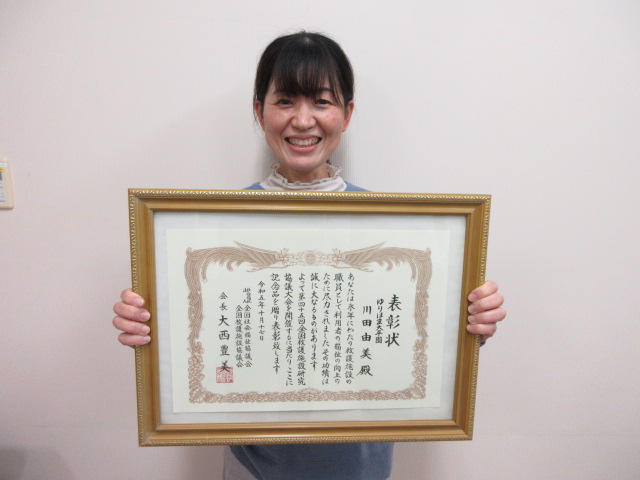 表彰状
ゆりはま大平園
川田由美殿
あなたは永年にわたり救護施設の
職員として利用者の福祉の向上の
ために尽力されましたその功績は
誠に大なるものがあります
よって第四十五回全国救護施設研究
協議大会を開催するに当たりここに
記念品を贈り表彰致します
令和五年十月十七日
全国社会福祉協議会
全国救護施設協議会
会長 大西豊美